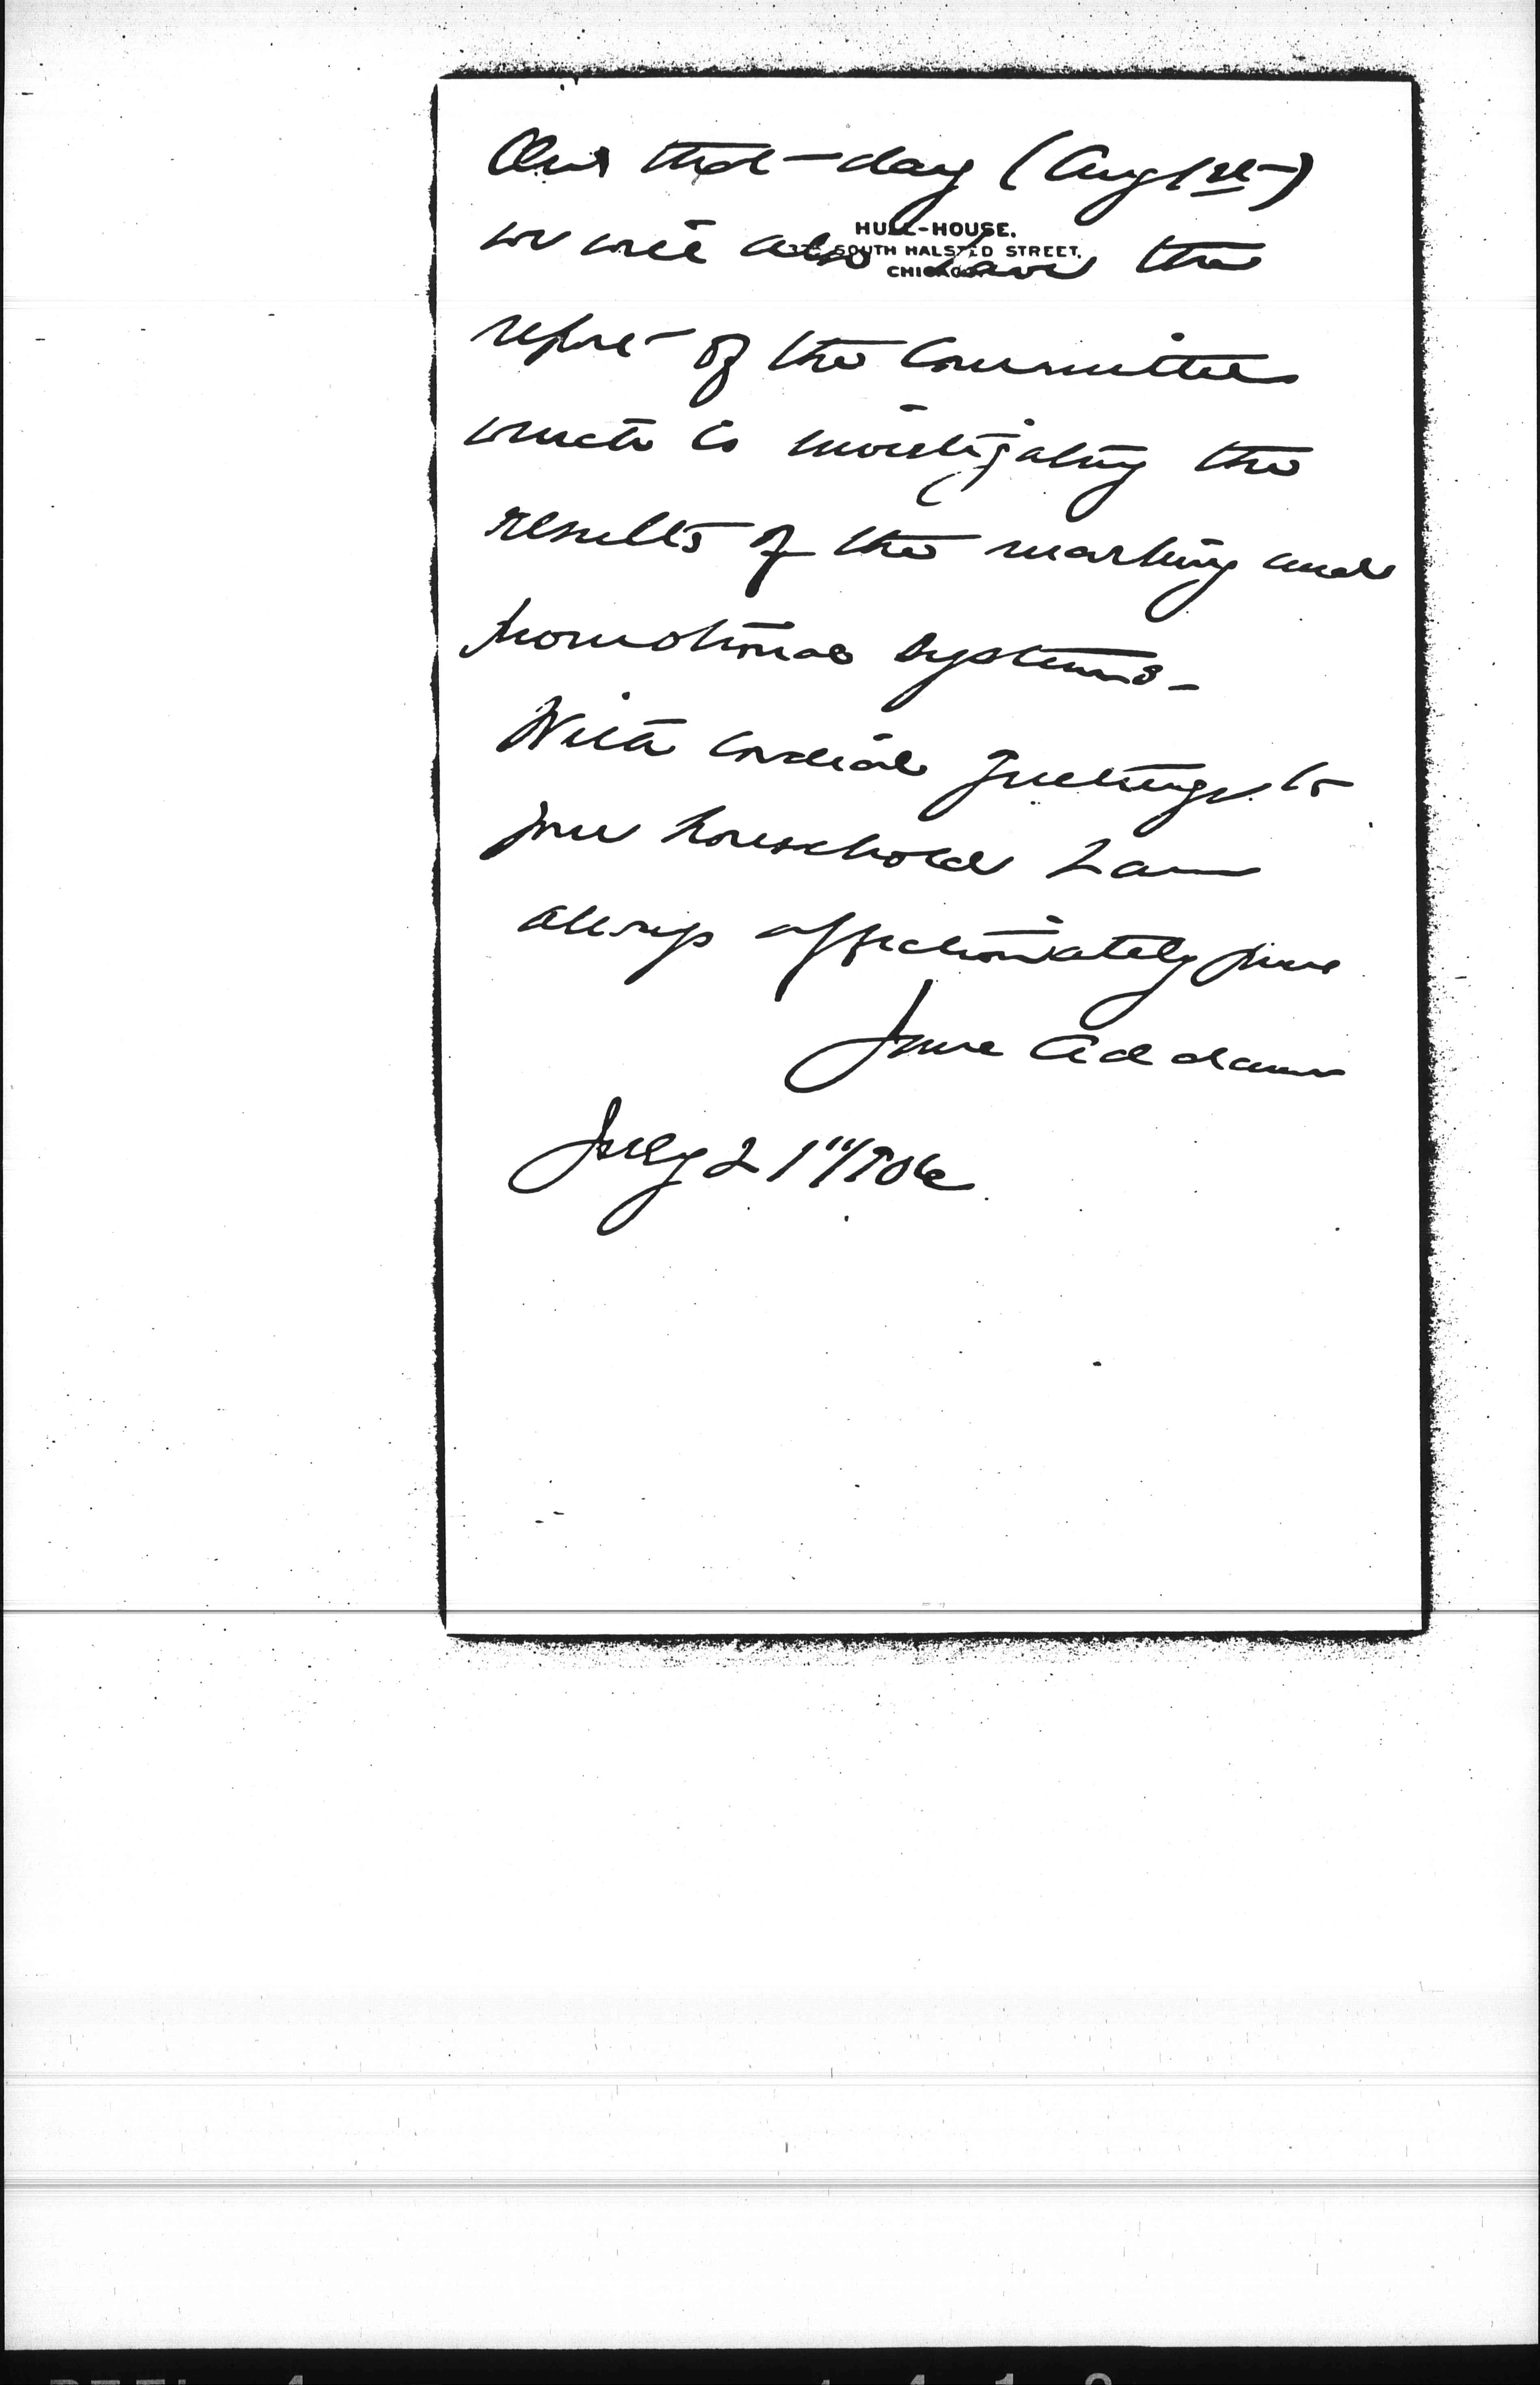 On that day (Aug 1st)
HULL-HOUSE.
335 SOUTH HALSTED STREET,
CHICAGO.
we will also have the
report of the Committee
which is investigating the
results of the marking and
promotional systems—
With cordial greetings to
your household I am
always affectionately yours
Jane Addams
July 21" 1906